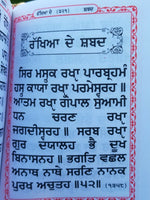 ਰੱਖਿਆ ਦੇ (੩੨੧) ਸ਼ਬਦ
ਰੱਖਿਆ ਦੇ ਸ਼ਬਦ
ਸਿਰ ਮਸ੍ਤਕ ਰਖ੍ਯਾ ਪਾਰਬ੍ਰਹਮੰ
ਹਸ੍ਤ ਕਾਯਾ ਰਖ੍ਯਾ ਪਰਮੇਸ੍ਵਰਹ ॥
ਆਤਮ ਰਖ੍ਯਾ ਗੋਪਾਲ ਸੁਆਮੀ
ਧਨ ਚਰਣ ਰਖ੍ਯਾ
ਜਗਦੀਸ੍ਵਰਹ ॥ ਸਰਬ ਰਖ੍ਯਾ
ਗੁਰ ਦਯਾਲਹ ਭੈ ਦੂਖ
ਬਿਨਾਸਨਹ ॥ ਭਗਤਿ ਵਛਲ
ਅਨਾਥ ਨਾਥੇ ਸਰਣਿ ਨਾਨਕ
ਪੁਰਖ ਅਚੁਤਹ ॥੫੨॥ (੧੩੫੮)